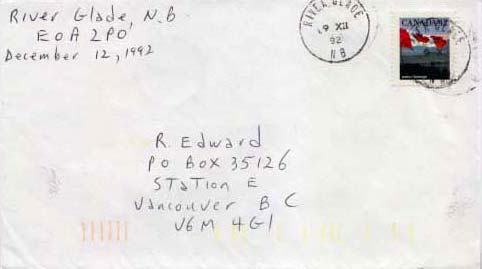 River Glade, N.B
E0A 2P0
December 12, 1992
RIVER GLADE
19 XII
92
N B
CANADA 42
R. Edward
PO BOX 35126
STaTion E
Vancouver B C
V6M 4G1